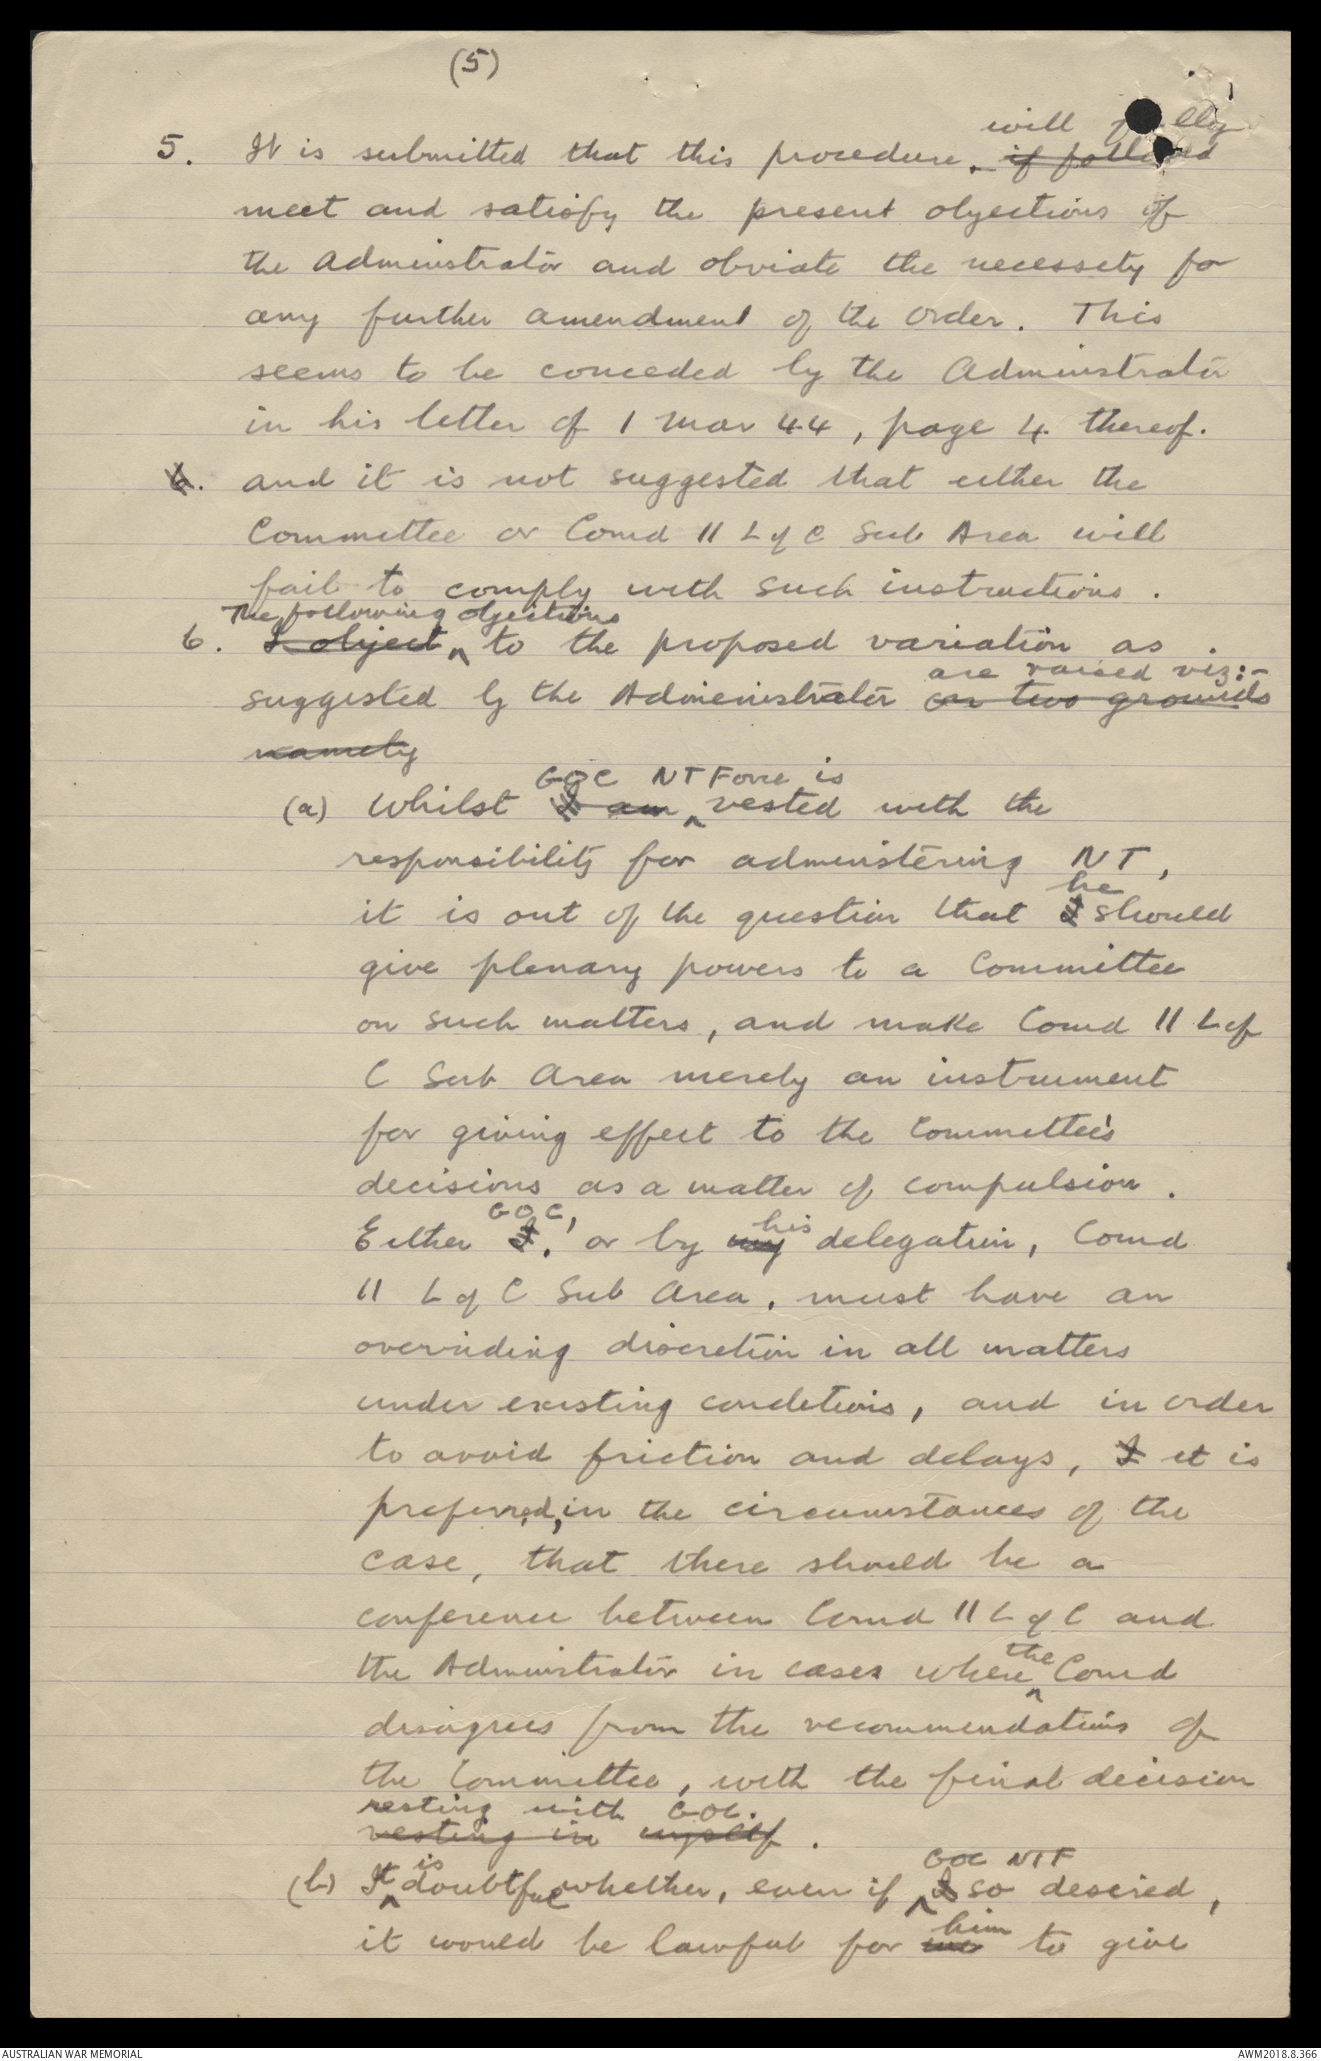 (5)
will f lly
5. It is submitted that this procedure, if followed
meet and satisfy the present objections of
the Administrator and obviate the necessity for
any further amendment of the Order. This
seems to be conceded by the Administrator
in his letter of 1 Mar 44, page 4 thereof.
6. and it is not suggested that either the
Committee or Comd 11 L of C Sub Area will
fail to comply with such instructions.
The following objections
6. I object ^ to the proposed variation as
are raised viz:-
suggested by the Administrator on two grounds
namely
GOC NT Force is
(a) Whilst I am ^ vested with the
responsibility for administering NT,
he
it is out of the question that I should
give plenary powers to a Committee
on such matters, and make Comd 11 L of
C Sub Area merely an instrument
for giving effect to the Committee's
decisions as a matter of compulsion.
GOC, his
Either I, or by my delegation, Comd
11 L of C Sub Area, must have an
overriding discretion in all matters
under existing conditions, and in order
to avoid friction and delays, I it is
preferred, in the circumstances of the
case, that there should be a
conference between Comd 11 L of C and
the
the Administrator in cases where ^ Comd
disagrees from the recommendations of
the Committee, with the final decision
resting with GOC.
vesting in myself.
is GOC NTF
(b) It ^ doubtful whether, even if ^ I so desired,
him
it would be lawful for me to give
AUSTRALIAN WAR MEMORIAL
AWM2018.8.366